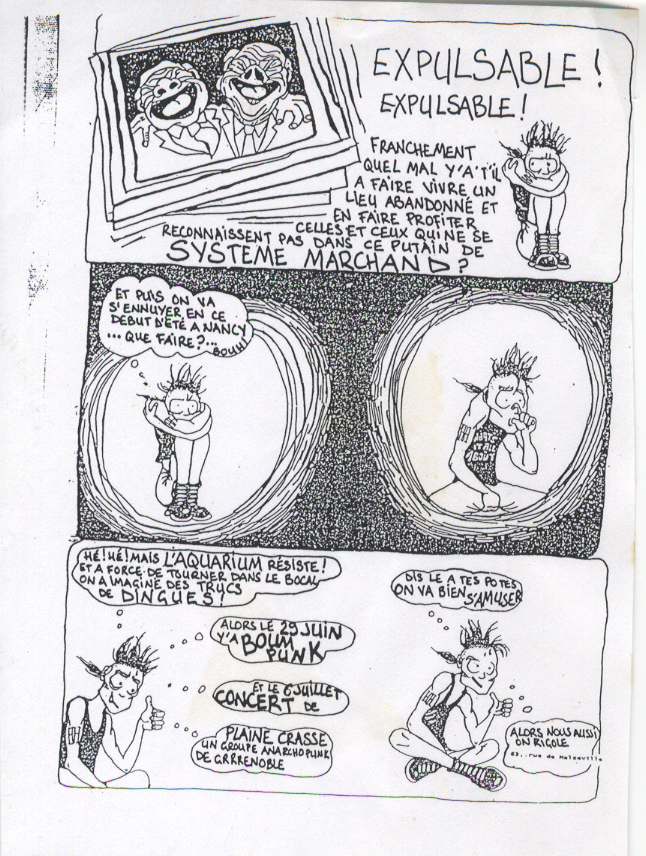 EXPULSABLE !
EXPULSABLE !
FRANCHEMENT
QUEL MAL Y'A'T'IL
A FAIRE VIVRE UN
LIEU ABANDONNÉ ET
EN FAIRE PROFITER
CELLES ET CEUX QUI NE SE
RECONNAISSENT PAS DANS CE PUTAIN DE
SYSTEME MARCHAND ?
ET PUIS ON VA
S'ENNUYER EN CE
DEBUT D'ÉTÉ A NANCY
... QUE FAIRE ?...
BOUH!
WHAT'S
IT ALL
ABOUT
HÉ! HÉ! MAIS L'AQUARIUM RÉSISTE!
ET A FORCE DE TOURNER DANS LE BOCAL
ON A IMAGINÉ DES TRUCS
DE DINGUES!
ALORS LE 29 JUIN
Y'A BOUM
PUNK
ET LE 6 JUILLET
CONCERT DE
PLAINE CRASSE
UN GROUPE ANARCHOPUNK
DE GRRRENOBLE
DIS LE A TES POTES
ON VA BIEN S'AMUSER
ALORS NOUS AUSSI
ON RIGOLE
63, rue de Malzéville